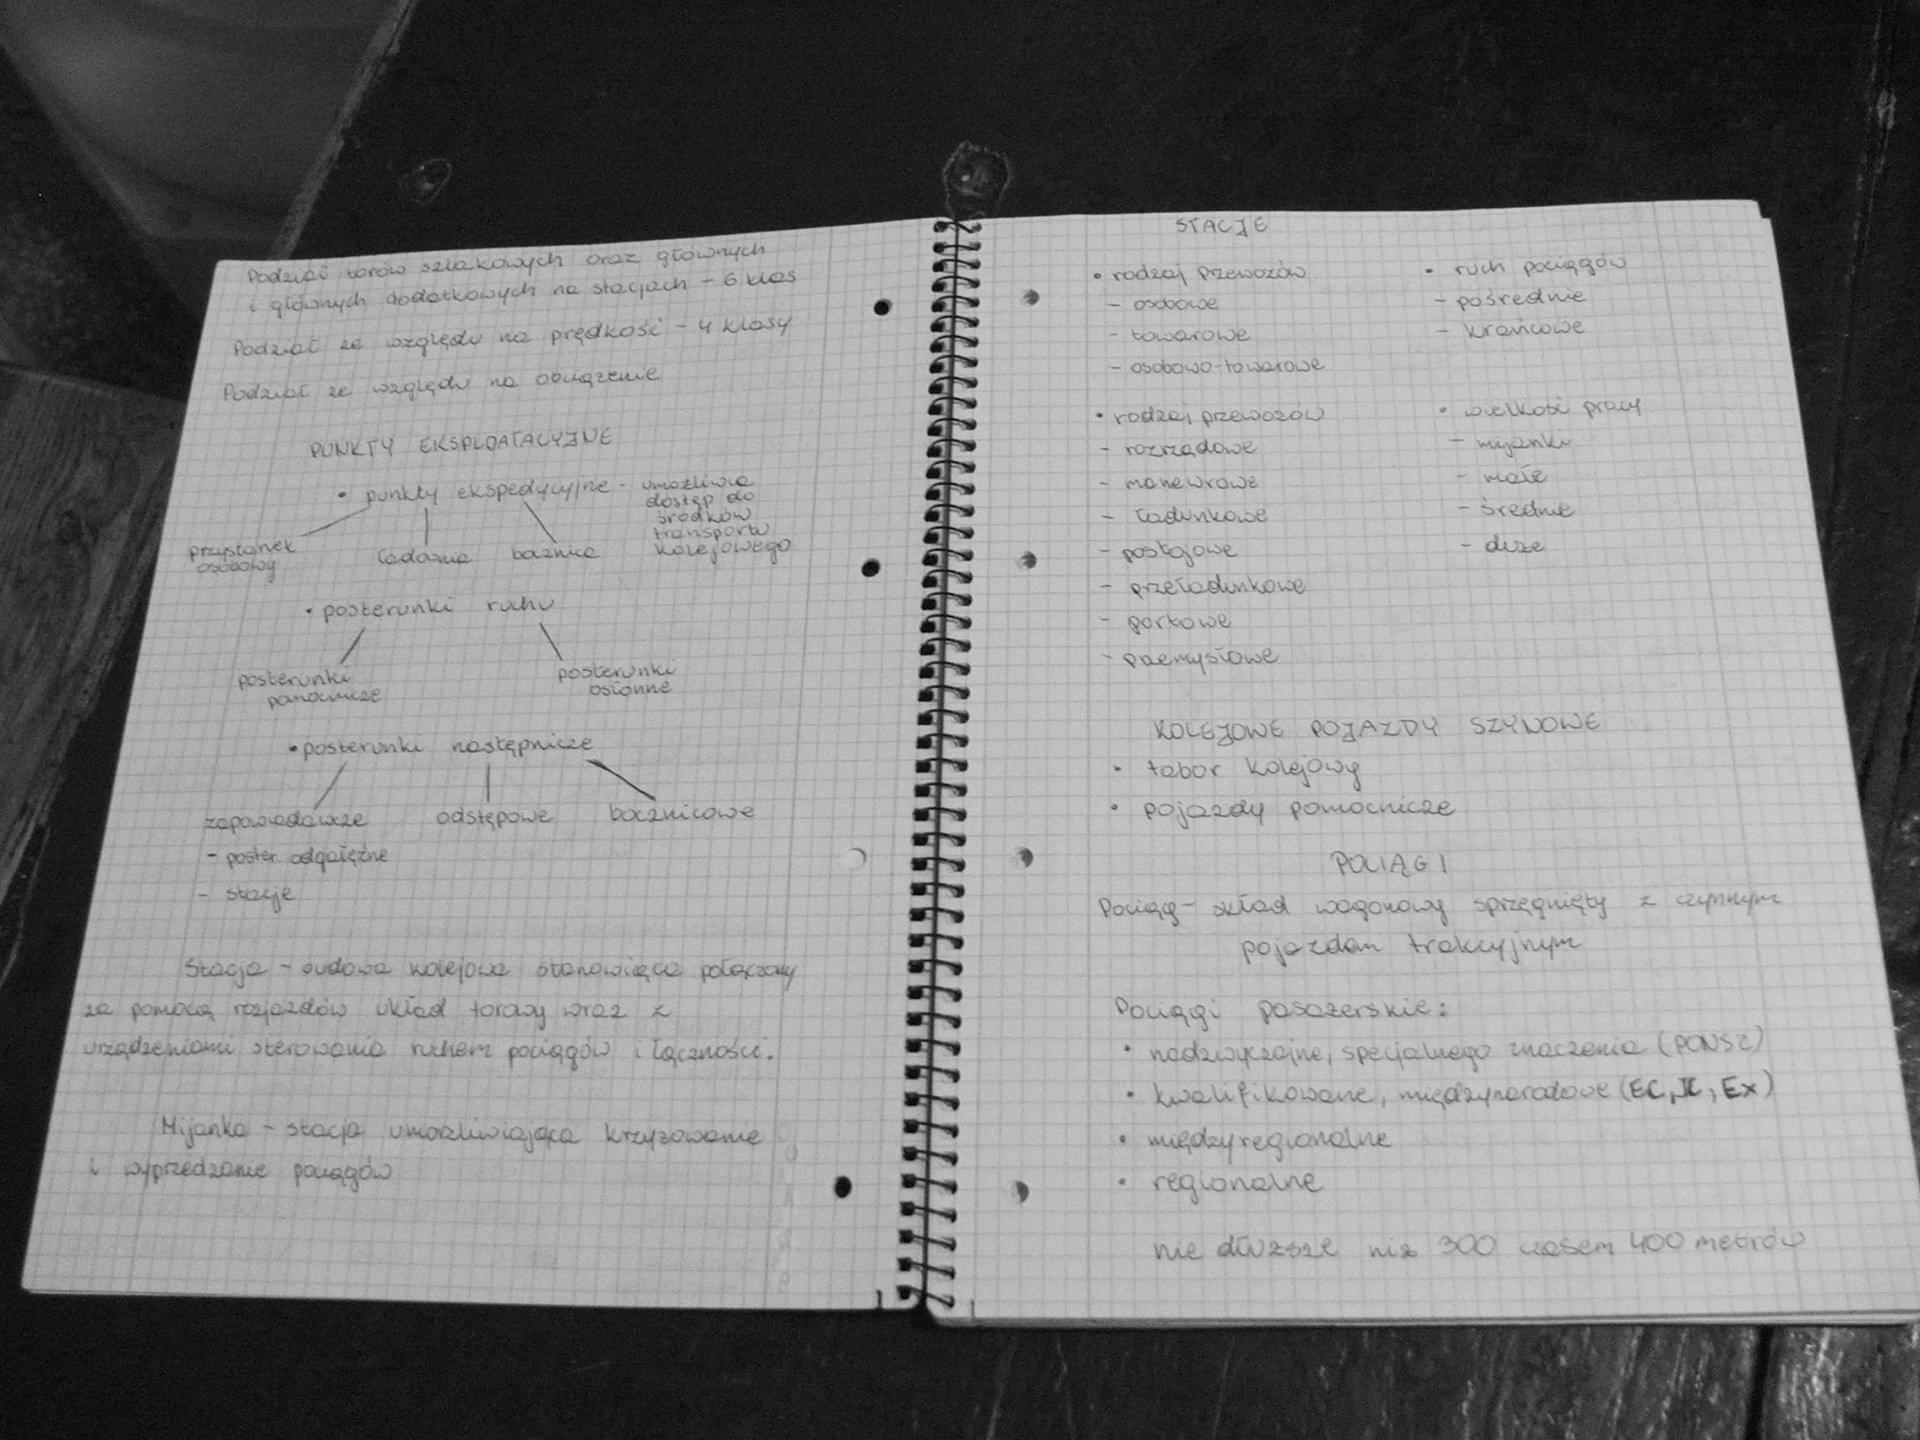 Podział torów szlakowych oraz głównych
i głównych dodatkowych na stacjach - 6 klas
Podział ze względu na prędkość - 4 klasy
Podział ze względu na obciążenie
PUNKTY EKSPLOATACYJNE
• punkty ekspedycyjne - umożliwia
dostęp do
środków
transportu
kolejowego
przystanek
osobowy
ładownia
bocznica
• posterunki ruchu
posterunki
pomocnicze
posterunki
osłonne
• posterunki następnicze
zapowiadawcze
odstępowe
bocznicowe
- poster. odgałęźne
- stacje
Stacja - budowa kolejowa stanowiąca połączony
za pomocą rozjazdów układ torowy wraz z
urządzeniami sterowania ruchem pociągów i łączności.
Mijanka - stacja umożliwiająca krzyżowanie
i wyprzedzanie pociągów
STACJE
• rodzaj przewozów
- osobowe
- towarowe
- osobowo-towarowe
• ruch pociągów
- pośrednie
- krańcowe
• rodzaj przewozów
- rozrządowe
- manewrowe
- ładunkowe
- postojowe
- przeładunkowe
- portowe
- przemysłowe
• wielkość pracy
- mijanki
- małe
- średnie
- duże
KOLEJOWE POJAZDY SZYNOWE
• tabor kolejowy
• pojazdy pomocnicze
POCIĄGI
Pociąg - skład wagonowy sprzęgnięty z czynnym
pojazdem trakcyjnym
Pociągi pasażerskie:
• nadzwyczajne, specjalnego znaczenia (PONSZ)
• kwalifikowane, międzynarodowe (EC, IC, Ex)
• międzyregionalne
• regionalne
nie dłuższe niż 300 czasem 400 metrów